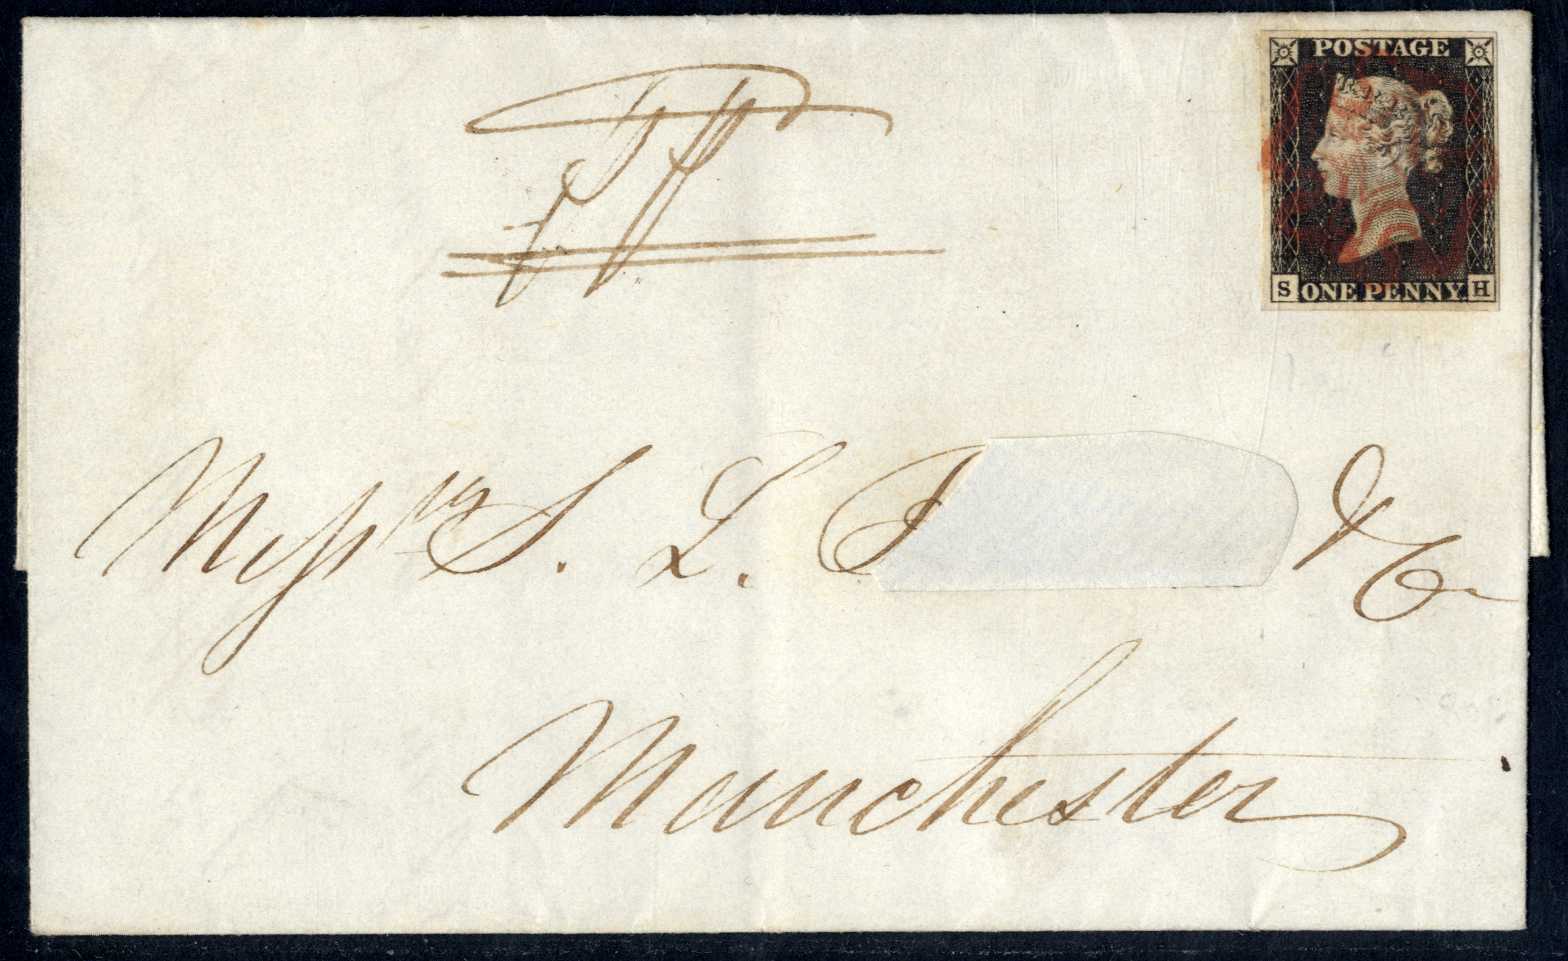 POSTAGE
S ONE PENNY H
Messrs S. L. & Co
Manchester